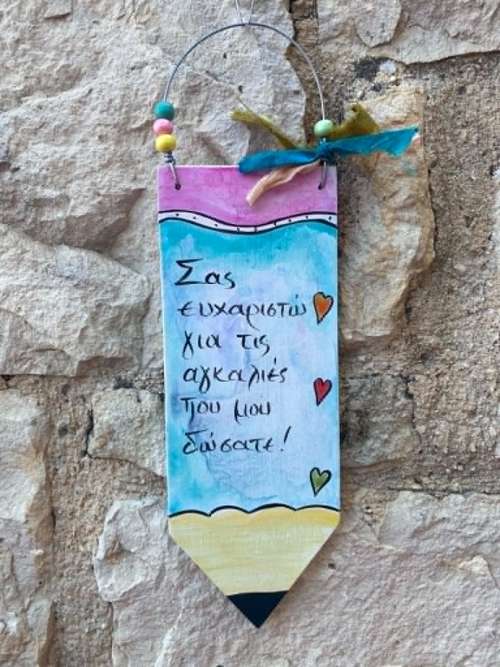 Σας
ευχαριστώ
για τις
αγκαλιές
που μου
δώσατε!